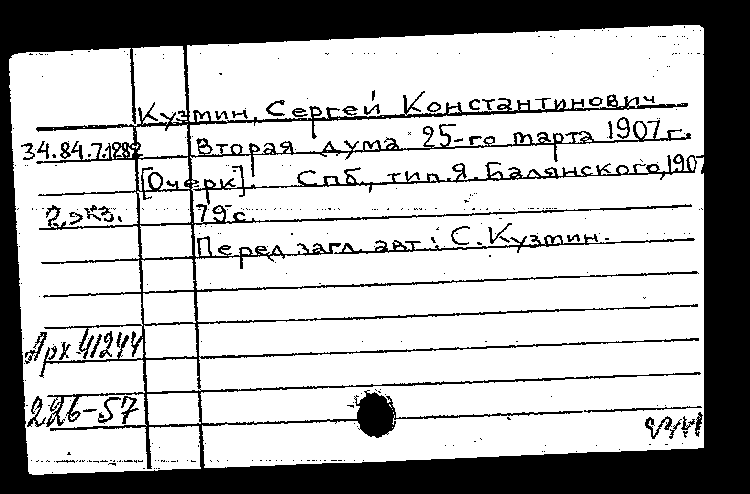 Кузмин, Сергей Константинович
34.84.7.1282 Вторая дума 25-го марта 1907 г.
[Очерк]. Спб., тип. Я. Балянского, 1907
2 экз. 79 с.
Перед загл. авт.: С. Кузмин.
Арх 41244
226-57